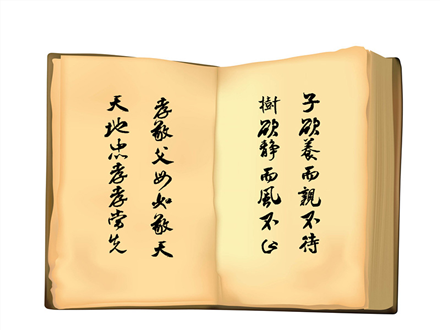 子欲養而親不待
樹欲静而風不止
孝敬父母如敬天
天地忠孝孝當先